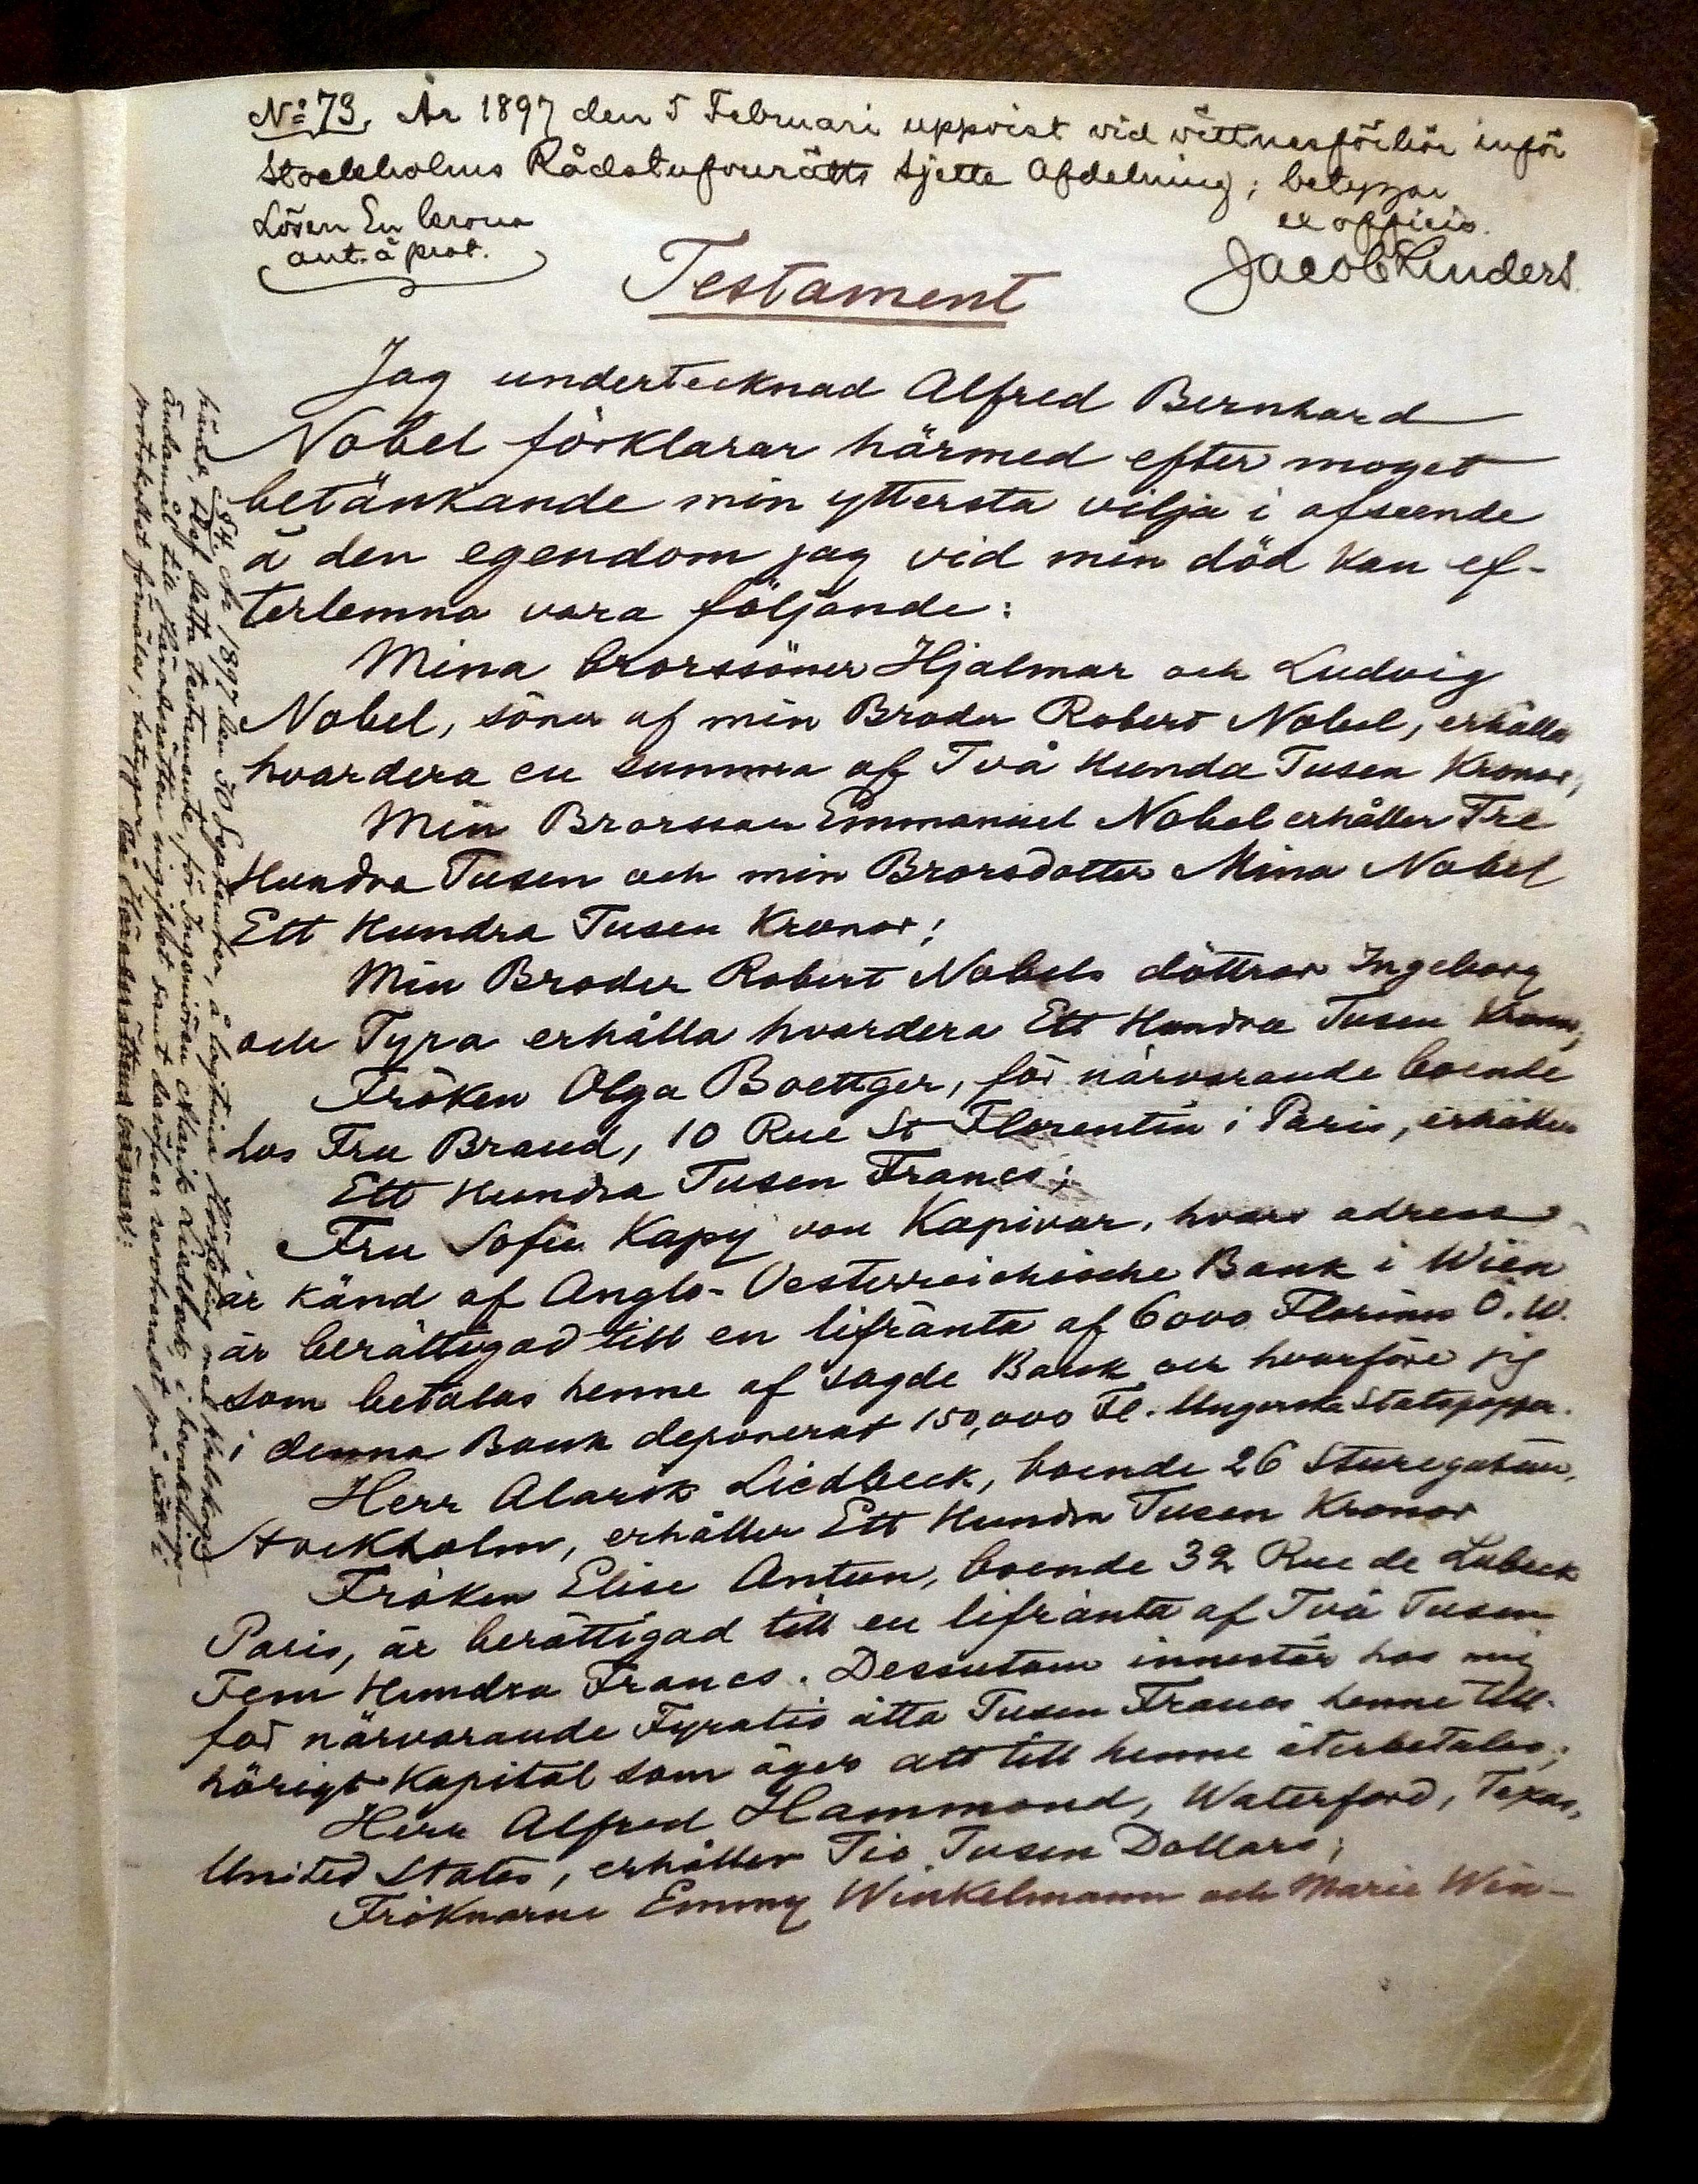 No 73, År 1897 den 5 Februari uppvist vid vittnesförhör inför
Stockholms Rådstufvurätts Sjette Afdelning; betygar
Lösen En krona
ant. å prot.
ex officio.
Jacob Linders
Testament
Jag undertecknad Alfred Bernhard
Nobel förklarar härmed efter moget
betänkande min yttersta vilja i afseende
å den egendom jag vid min död kan ef-
terlemna vara följande:
Mina brorssöner Hjalmar och Ludvig
Nobel, söner af min Broder Robert Nobel, erhålla
hvardera en summa af Två Hundra Tusen Kronor;
Min Brorsson Emmanuel Nobel erhåller Tre
Hundra Tusen och min Brorsdotter Mina Nobel
Ett Hundra Tusen Kronor;
Min Broder Robert Nobels döttrar Ingeborg
och Tyra erhålla hvardera Ett Hundra Tusen Kronor;
Fröken Olga Boettger, för närvarande boende
hos Fru Brand, 10 Rue St Florentin i Paris, erhåller
Ett Hundra Tusen Francs;
Fru Sofie Kapy von Kapivar, hvars adress
är känd af Anglo-Oesterreichische Bank i Wien
är berättigad till en lifränta af 6000 Florins Ö.W.
som betalas henne af sagde Bank och hvarföre jag
i denna Bank deponerat 150,000 Fl. Ungerska Statspapper.
Herr Alarik Liedbeck, boende 26 Sturegatan,
Stockholm, erhåller Ett Hundra Tusen Kronor
Fröken Elise Antun, boende 32 Rue de Lubeck
Paris, är berättigad till en lifränta af Två Tusen
Fem Hundra Francs. Dessutom innestår hos mig
för närvarande Fyratio åtta Tusen Francs henne till-
hörigt Kapital som äger att till henne återbetalas;
Herr Alfred Hammond, Waterford, Texas,
United States, erhåller Tio Tusen Dollars;
Fröknarne Emmy Winkelmann och Marie Win-
År 1897 den 30 September, å lagtima Hösteting med Karlskoga
härad, blef detta testamente, för Ingeniören Alarik Liedbeck, i bevaknings-
ändamål till Häradsrätten ingifvet samt derefter
protokollet förmäler; betygar På Häradsrättens vägnar: